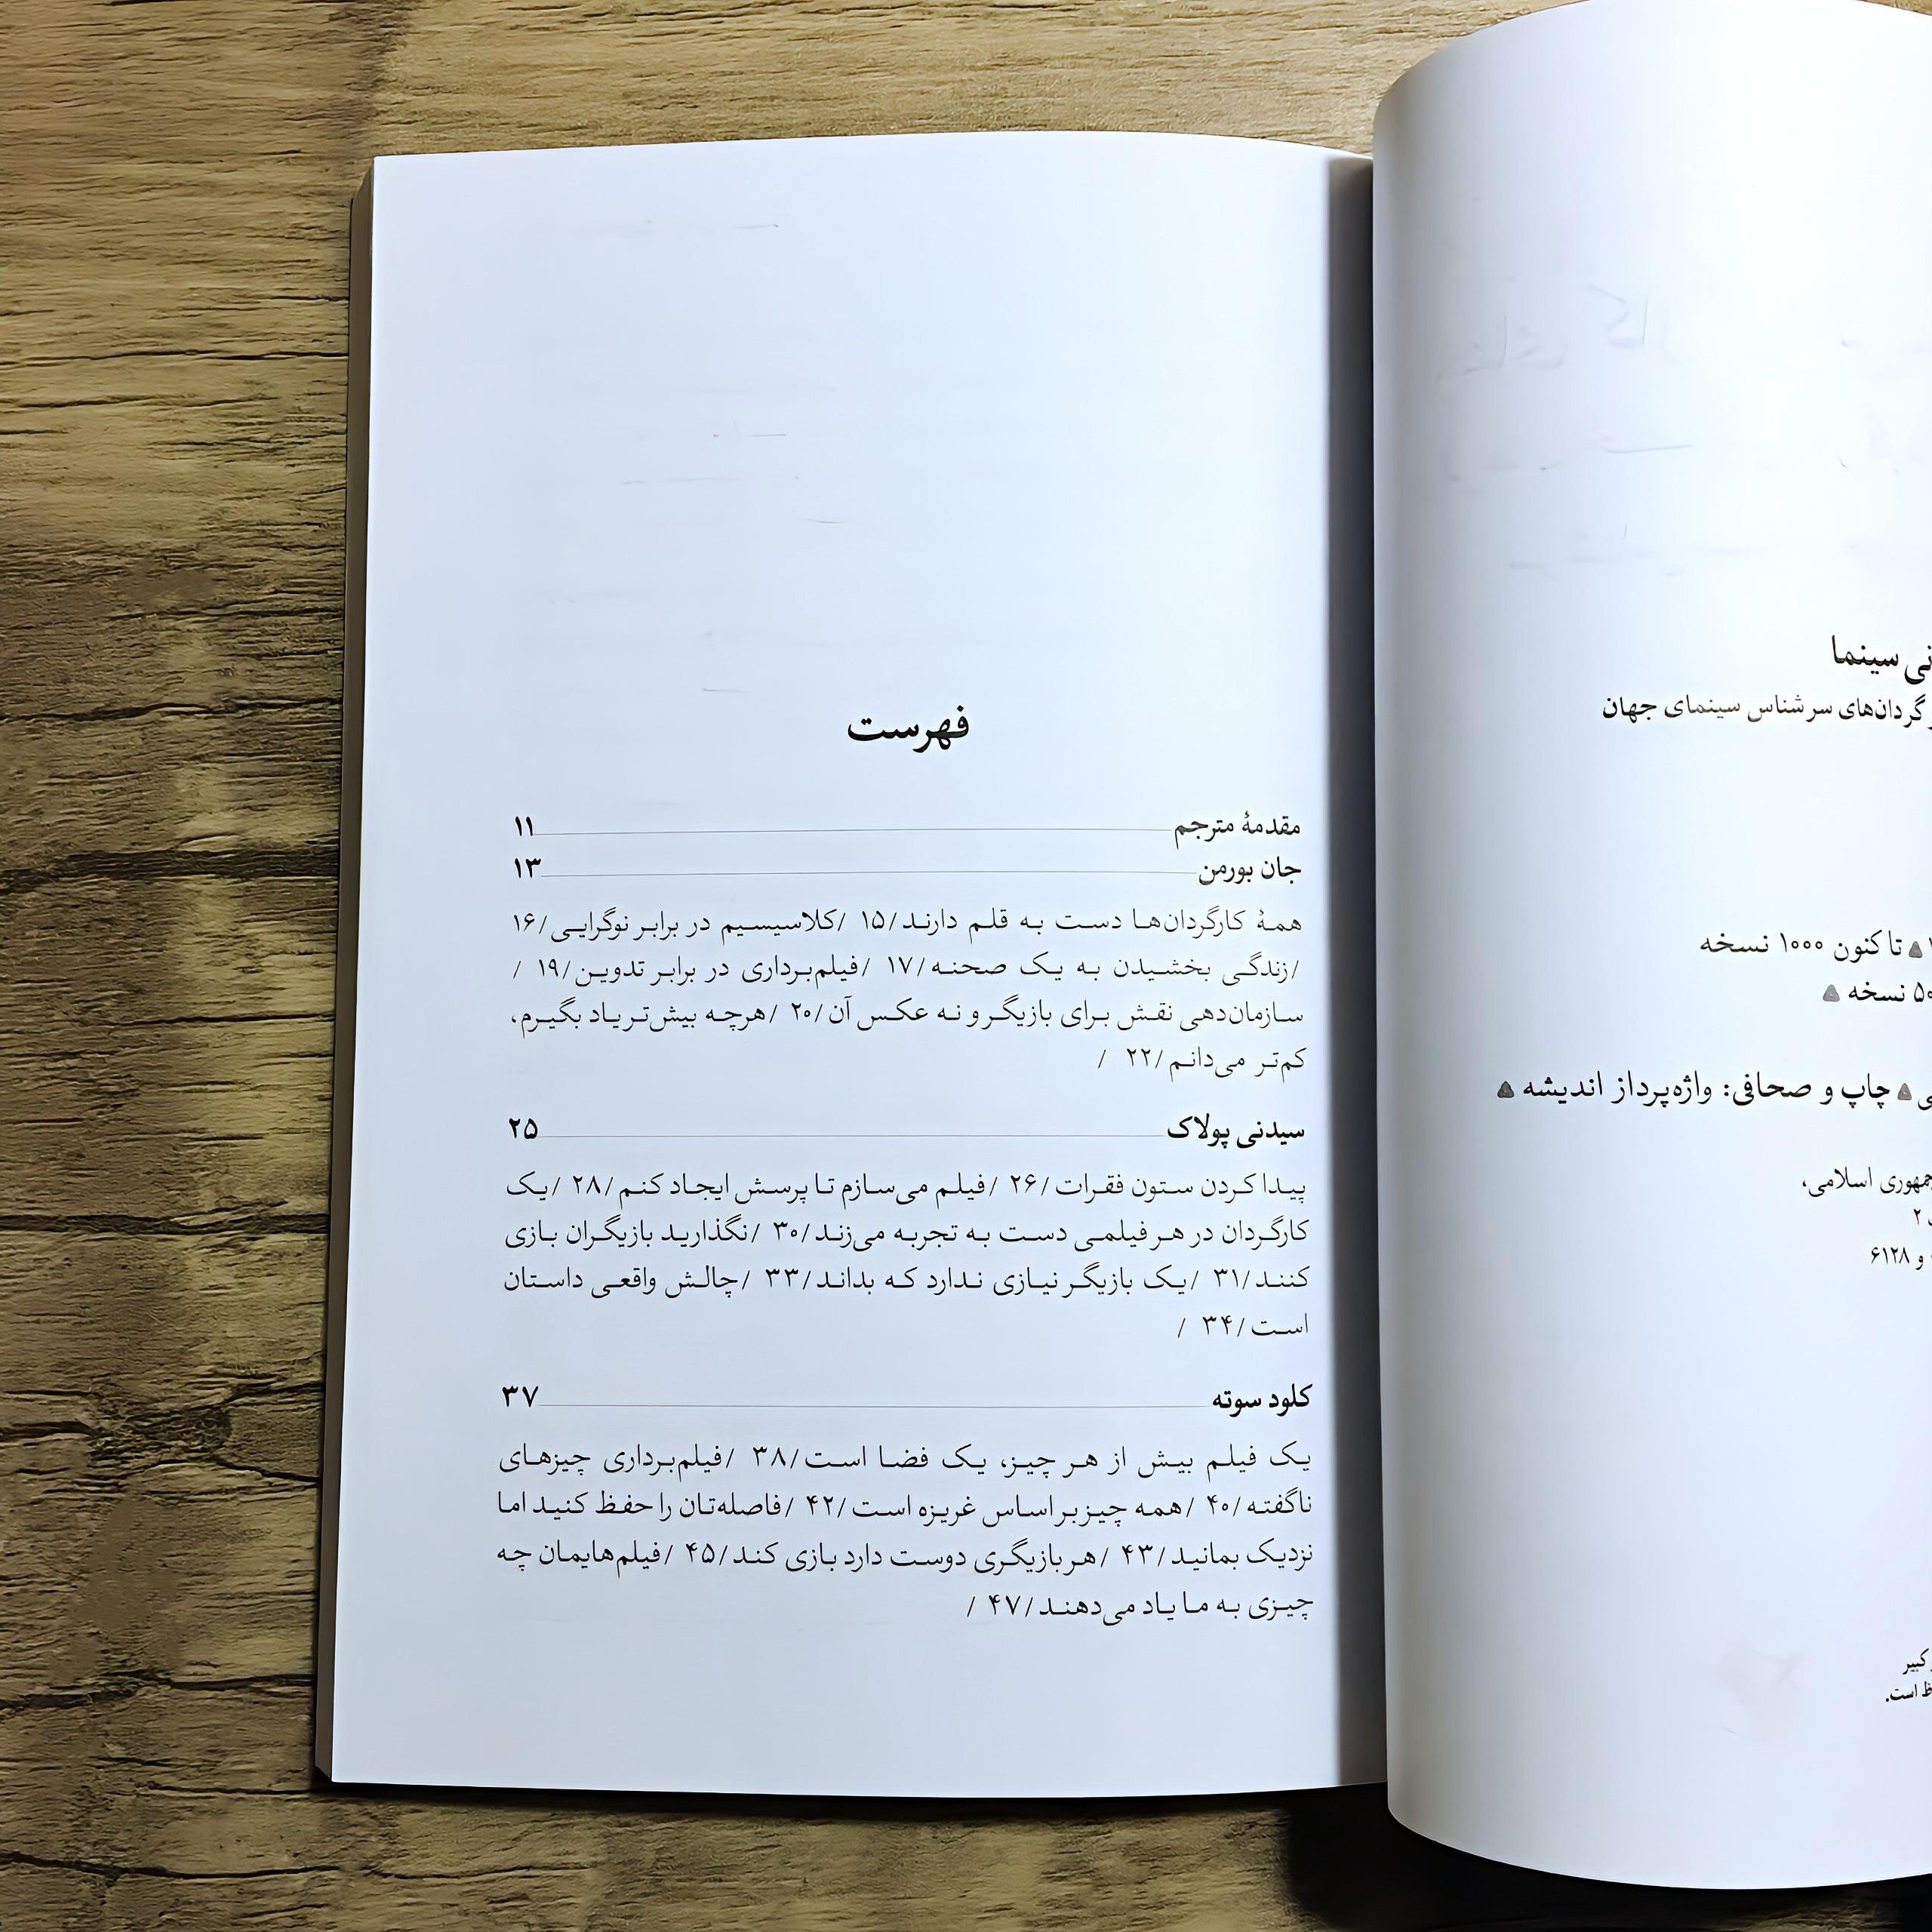 سینما
گردان‌های سرشناس سینمای جهان
تاکنون ۱۰۰۰ نسخه
نسخه
چاپ و صحافی: واژه‌پرداز اندیشه
اسلامی،
۲
و ۶۱۲۸
کبیر
است.
فهرست
مقدمهٔ مترجم ۱۱
جان بورمن ۱۳
همهٔ کارگردان‌ها دست به قلم دارند/۱۵ /کلاسیسیم در برابر نوگرایی/۱۶
/زندگی بخشیدن به یک صحنه/۱۷ /فیلم‌برداری در برابر تدوین/۱۹ /
سازمان‌دهی نقش برای بازیگر و نه عکس آن/۲۰ /هرچه بیش‌تر یاد بگیرم،
کم‌تر می‌دانم/۲۲ /
سیدنی پولاک ۲۵
پیدا کردن ستون فقرات/۲۶ /فیلم می‌سازم تا پرسش ایجاد کنم/۲۸ /یک
کارگردان در هر فیلمی دست به تجربه می‌زند/۳۰ /نگذارید بازیگران بازی
کنند/۳۱ /یک بازیگر نیازی ندارد که بداند/۳۳ /چالش واقعی داستان
است/۳۴ /
کلود سوته ۳۷
یک فیلم بیش از هر چیز، یک فضا است/۳۸ /فیلم‌برداری چیزهای
ناگفته/۴۰ /همه چیز بر اساس غریزه است/۴۲ /فاصله‌تان را حفظ کنید اما
نزدیک بمانید/۴۳ /هر بازیگری دوست دارد بازی کند/۴۵ /فیلم‌هایمان چه
چیزی به ما یاد می‌دهند/۴۷ /